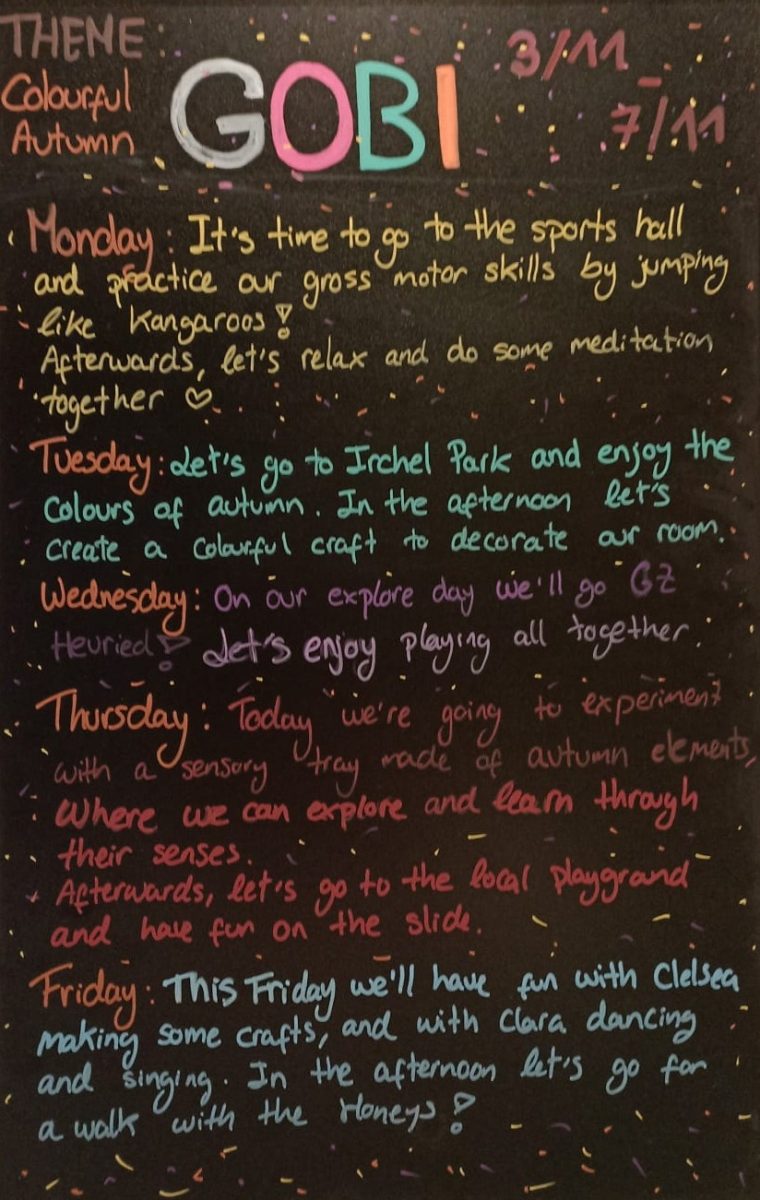 THEME:
Colourful
Autumn
GOBI
3/11 -
7/11
Monday: It's time to go to the sports hall
and practice our gross motor skills by jumping
like Kangaroos!
Afterwards, let's relax and do some meditation
together ♡
Tuesday: Let's go to Irchel Park and enjoy the
colours of autumn. In the afternoon let's
create a colourful craft to decorate our room.
Wednesday: On our explore day we'll go GZ
Heuried! Let's enjoy playing all together.
Thursday: Today we're going to experiment
with a sensory tray made of autumn elements,
Where we can explore and learn through
their senses.
Afterwards, let's go to the local playground
and have fun on the slide.
Friday: This Friday we'll have fun with Clelsea
making some crafts, and with Clara dancing
and singing. In the afternoon let's go for
a walk with the Honeys!